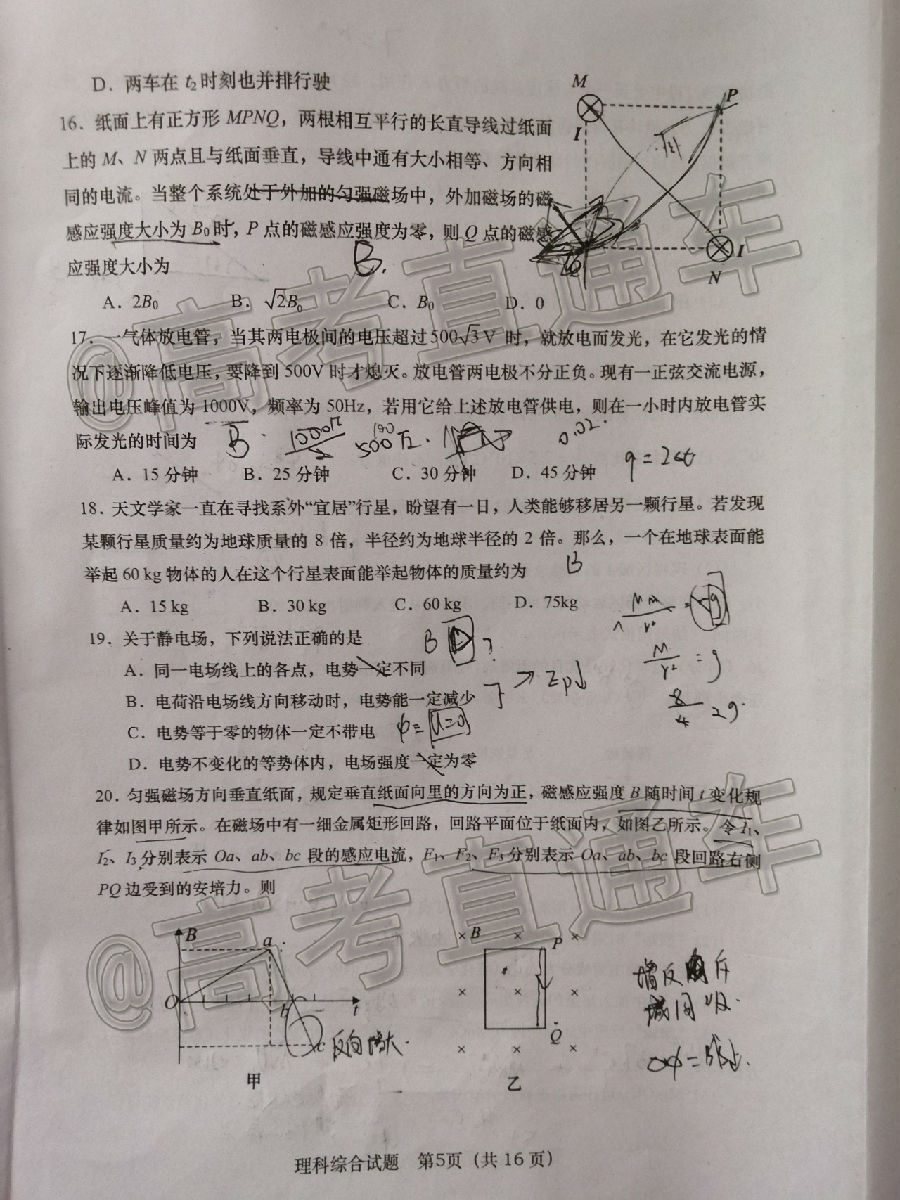 D．两车在 t₂ 时刻也并排行驶
16．纸面上有正方形 MPNQ，两根相互平行的长直导线过纸面
上的 M、N 两点且与纸面垂直，导线中通有大小相等、方向相
同的电流。当整个系统处于外加的匀强磁场中，外加磁场的磁
感应强度大小为 B₀ 时，P 点的磁感应强度为零，则 Q 点的磁感
应强度大小为
B.
M
P
I
Q
I
N
A．2B₀ B．√2B₀ C．B₀ D．0
17．一气体放电管，当其两电极间的电压超过500√3 V 时，就放电而发光，在它发光的情
况下逐渐降低电压，要降到 500V 时才熄灭。放电管两电极不分正负。现有一正弦交流电源，
输出电压峰值为 1000V，频率为 50Hz，若用它给上述放电管供电，则在一小时内放电管实
际发光的时间为
B. 0.02.
A．15 分钟 B．25 分钟 C．30 分钟 D．45 分钟
18．天文学家一直在寻找系外“宜居”行星，盼望有一日，人类能够移居另一颗行星。若发现
某颗行星质量约为地球质量的 8 倍，半径约为地球半径的 2 倍。那么，一个在地球表面能
举起 60 kg 物体的人在这个行星表面能举起物体的质量约为
B
A．15 kg B．30 kg C．60 kg D．75kg
19．关于静电场，下列说法正确的是
B D ?
A．同一电场线上的各点，电势一定不同
B．电荷沿电场线方向移动时，电势能一定减少
C．电势等于零的物体一定不带电
D．电势不变化的等势体内，电场强度一定为零
20．匀强磁场方向垂直纸面，规定垂直纸面向里的方向为正，磁感应强度 B 随时间 t 变化规
律如图甲所示。在磁场中有一细金属矩形回路，回路平面位于纸面内，如图乙所示。令 I₁、
I₂、I₃ 分别表示 Oa、ab、bc 段的感应电流，F₁、F₂、F₃ 分别表示 Oa、ab、bc 段回路右侧
PQ 边受到的安培力。则
B
a
O
b
t
c
反向增大.
甲
B
P
Q
乙
理科综合试题 第5页（共 16 页）
@高考直通车
@高考直通车